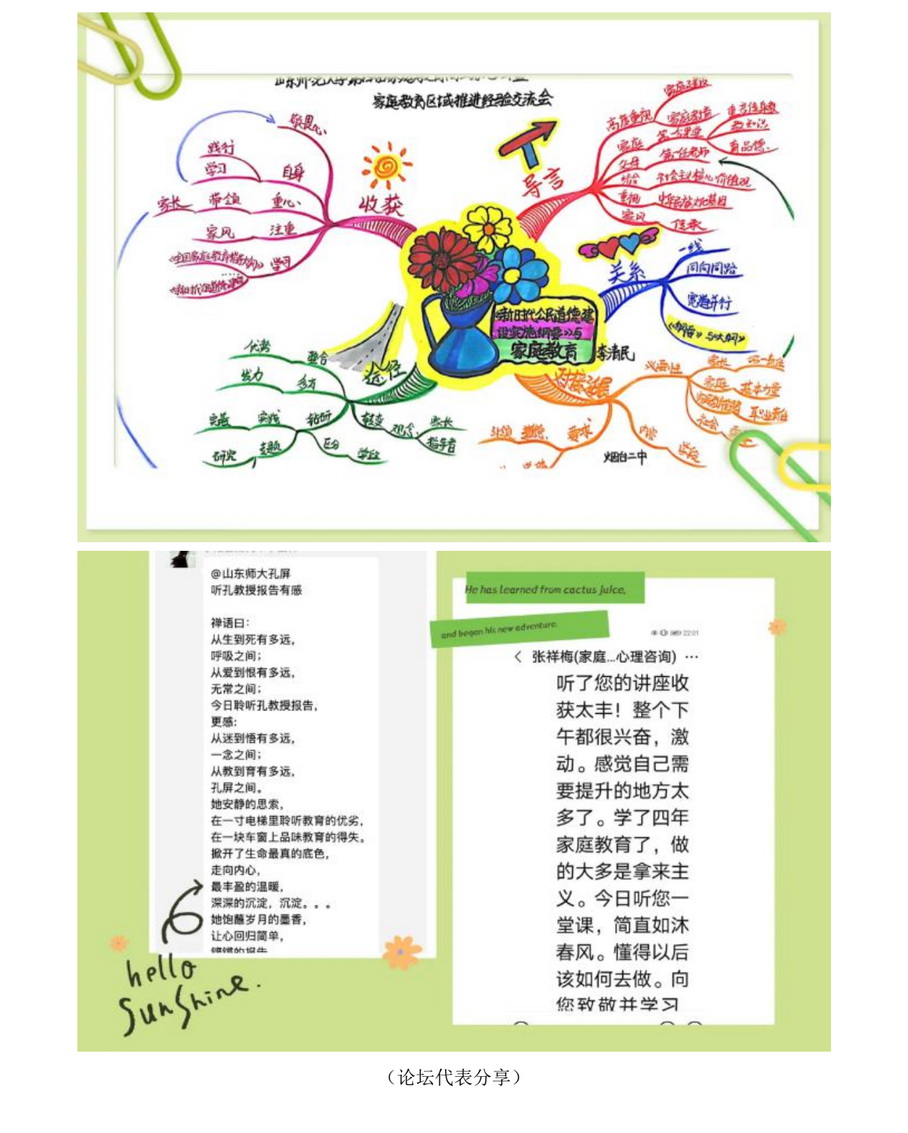 家庭教育区域推进经验交流会
导言
高度重视
家庭建设
家庭教育
家庭
第一个课堂
重言传身教
教知识
育品德
父母
第一任老师
社会主义核心价值观
重视
中华民族文化基因
家风
传承
关系
一线
同向同路
宽道并行
《新时代公民道德建
设实施纲要》与
家庭教育
李清民
必要性
家长
家庭
基本力量
职业责任
社会
内容
学校
要求
烟台二中
途径
整合
优势
多方
发力
转变
观念
家长
指导者
钻研
实践
实施
主题
研究
区分
学段
收获
敬畏心
自身
践行
学习
重心
带领
家长
注重
家风
学习
《全国家庭教育指导大纲》
@山东师大孔屏
听孔教授报告有感
禅语曰:
从生到死有多远,
呼吸之间;
从爱到恨有多远,
无常之间;
今日聆听孔教授报告,
更感:
从迷到悟有多远,
一念之间;
从教到育有多远,
孔屏之间。
她安静的思索,
在一寸电梯里聆听教育的优劣,
在一块车窗上品味教育的得失。
掀开了生命最真的底色,
走向内心,
最丰盈的温暖,
深深的沉淀，沉淀。。。
她饱蘸岁月的墨香,
让心回归简单,
hello
sunshine.
He has learned from cactus juice,
and began his new adventure.
22:01
张祥梅(家庭...心理咨询) ···
听了您的讲座收
获太丰！整个下
午都很兴奋，激
动。感觉自己需
要提升的地方太
多了。学了四年
家庭教育了，做
的大多是拿来主
义。今日听您一
堂课，简直如沐
春风。懂得以后
该如何去做。向
您致敬并学习
（论坛代表分享）